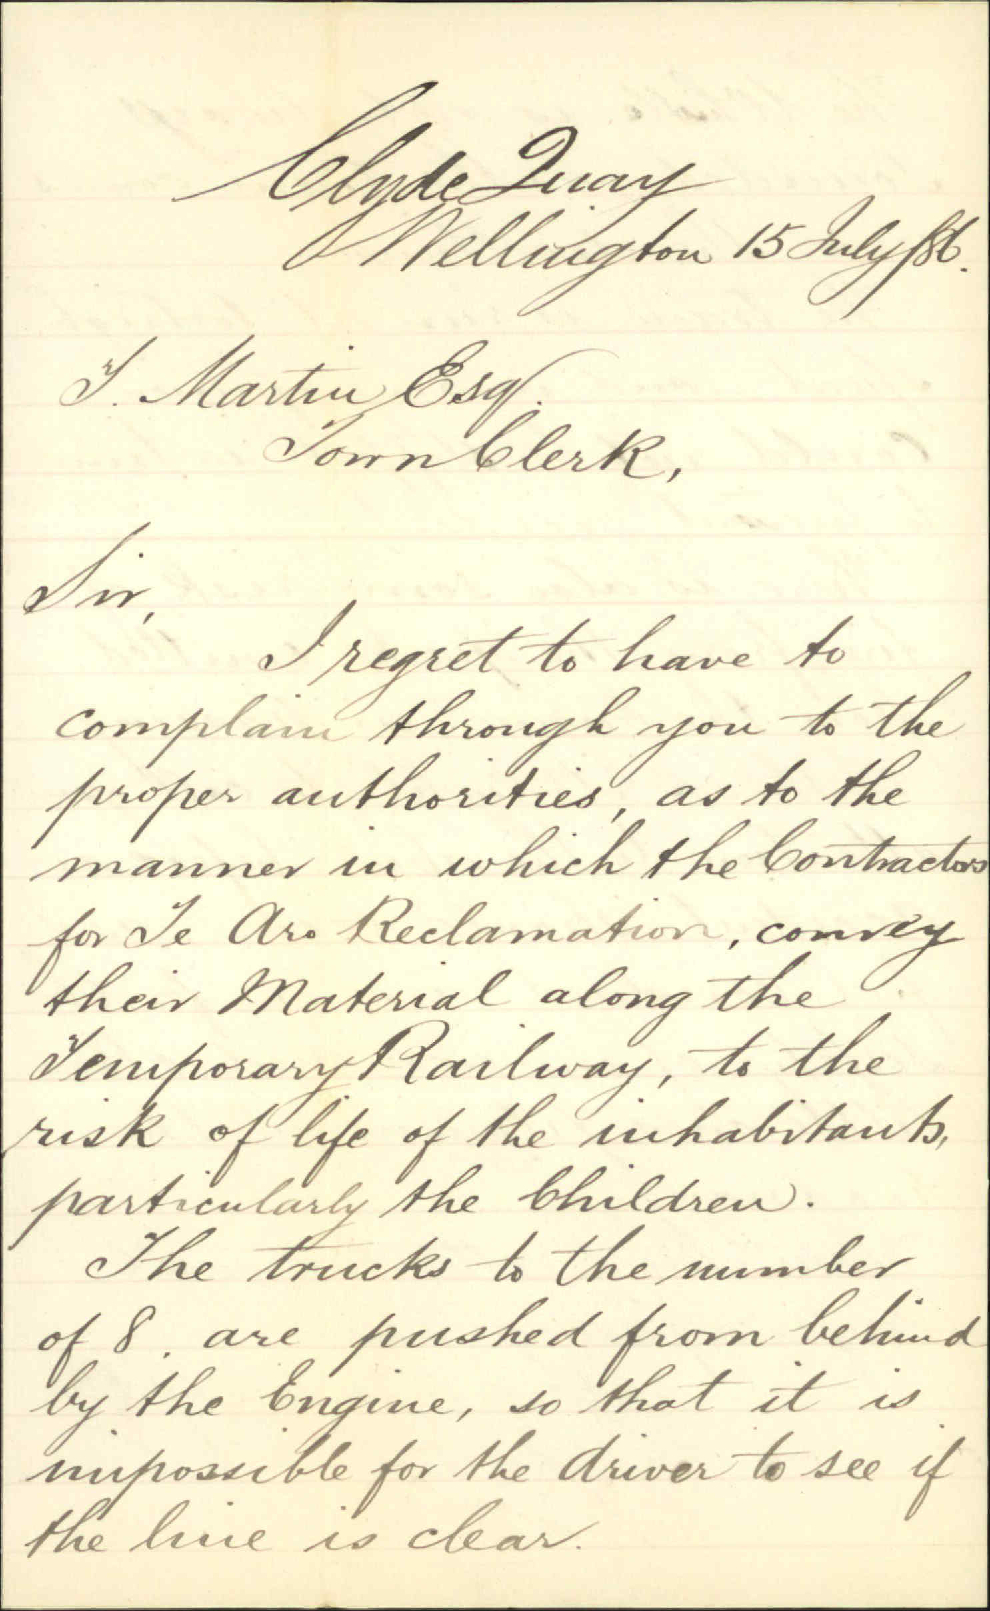 Clyde Quay
Wellington 15 July /86.
T. Martin Esq.
Town Clerk,
Sir,
I regret to have to
complain through you to the
proper authorities, as to the
manner in which the Contractors
for Te Aro Reclamation, convey
their Material along the
Temporary Railway, to the
risk of life of the inhabitants,
particularly the Children.
The trucks to the number
of 8, are pushed from behind
by the Engine, so that it is
impossible for the driver to see if
the line is clear.